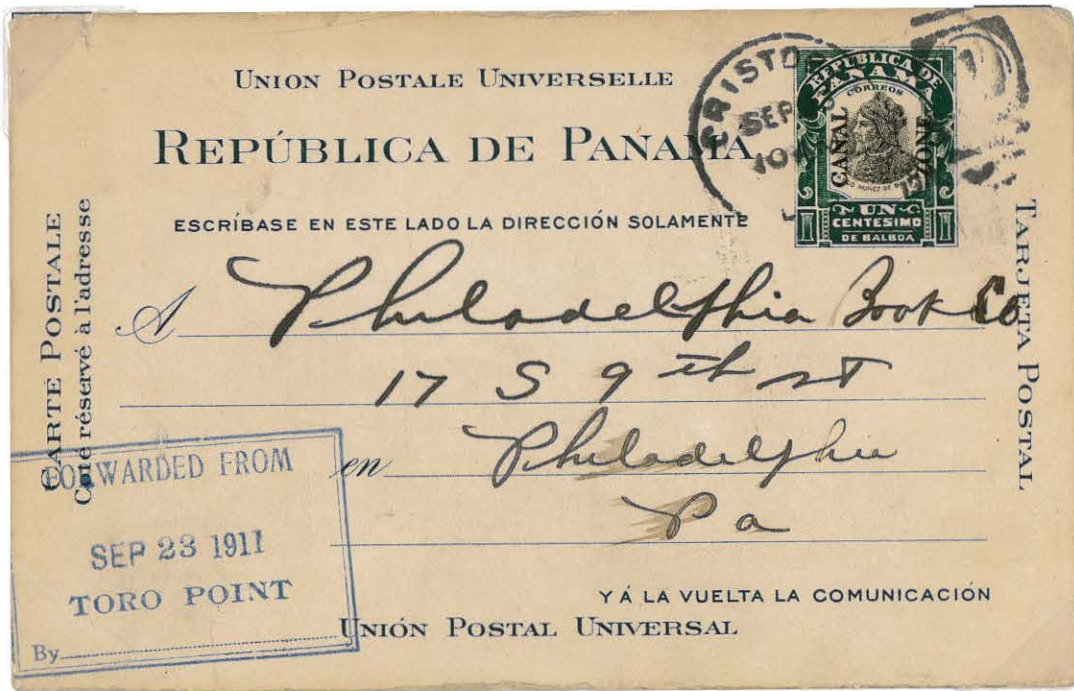 UNION POSTALE UNIVERSELLE
REPÚBLICA DE PANAMA
ESCRÍBASE EN ESTE LADO LA DIRECCIÓN SOLAMENTE
CARTE POSTALE
Côté réservé à l'adresse
TARJETA POSTAL
SEP
REPUBLICA DE
PANAMA
CORREOS
CANAL
ZONE
UN
CENTESIMO
DE BALBOA
1 1
A Philadelphia Book Co
17 S 9th st
en Philadelphia
Pa
FORWARDED FROM
SEP 23 1911
TORO POINT
By
Y Á LA VUELTA LA COMUNICACIÓN
UNIÓN POSTAL UNIVERSAL